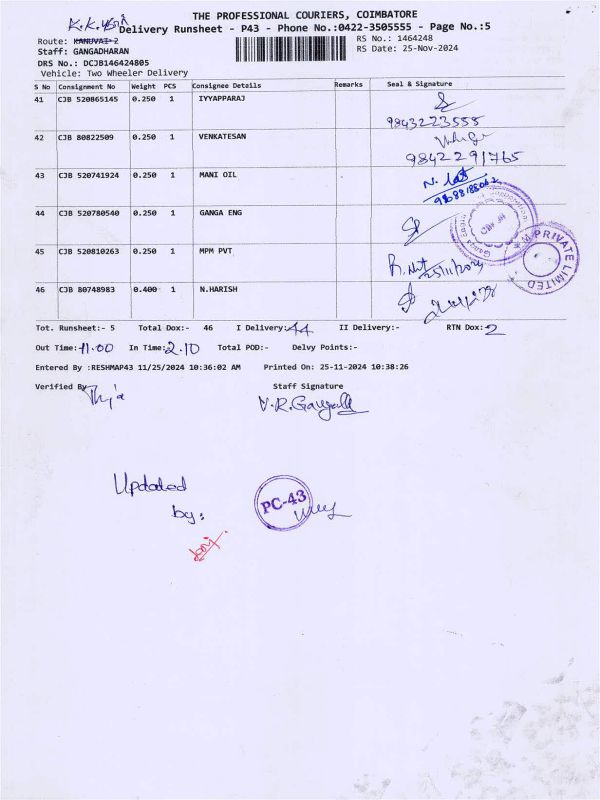 THE PROFESSIONAL COURIERS, COIMBATORE
K.K.புதூர்
Delivery Runsheet - P43 - Phone No.:0422-3505555 - Page No.:5
Route: KANUVAI-2
RS No.: 1464248
Staff: GANGADHARAN
RS Date: 25-Nov-2024
DRS No.: DCJB146424805
Vehicle: Two Wheeler Delivery
S No Consignment No Weight PCS Consignee Details Remarks Seal & Signature
41 CJB 520865145 0.250 1 IYYAPPARAJ
9843223555
42 CJB 80822509 0.250 1 VENKATESAN
9842291765
43 CJB 520741924 0.250 1 MANI OIL
44 CJB 520780540 0.250 1 GANGA ENG
45 CJB 520810263 0.250 1 MPM PVT
M PRIVATE LIMITED
25/11/2024
46 CJB 80748983 0.400 1 N.HARISH
Tot. Runsheet:- 5 Total Dox:- 46 I Delivery:- 44 II Delivery:- RTN Dox:- 2
Out Time:-11.00 In Time:-2.10 Total POD:- Delvy Points:-
Entered By :RESHMAP43 11/25/2024 10:36:02 AM Printed On: 25-11-2024 10:38:26
Verified By Staff Signature
Updated
by:
PC-43